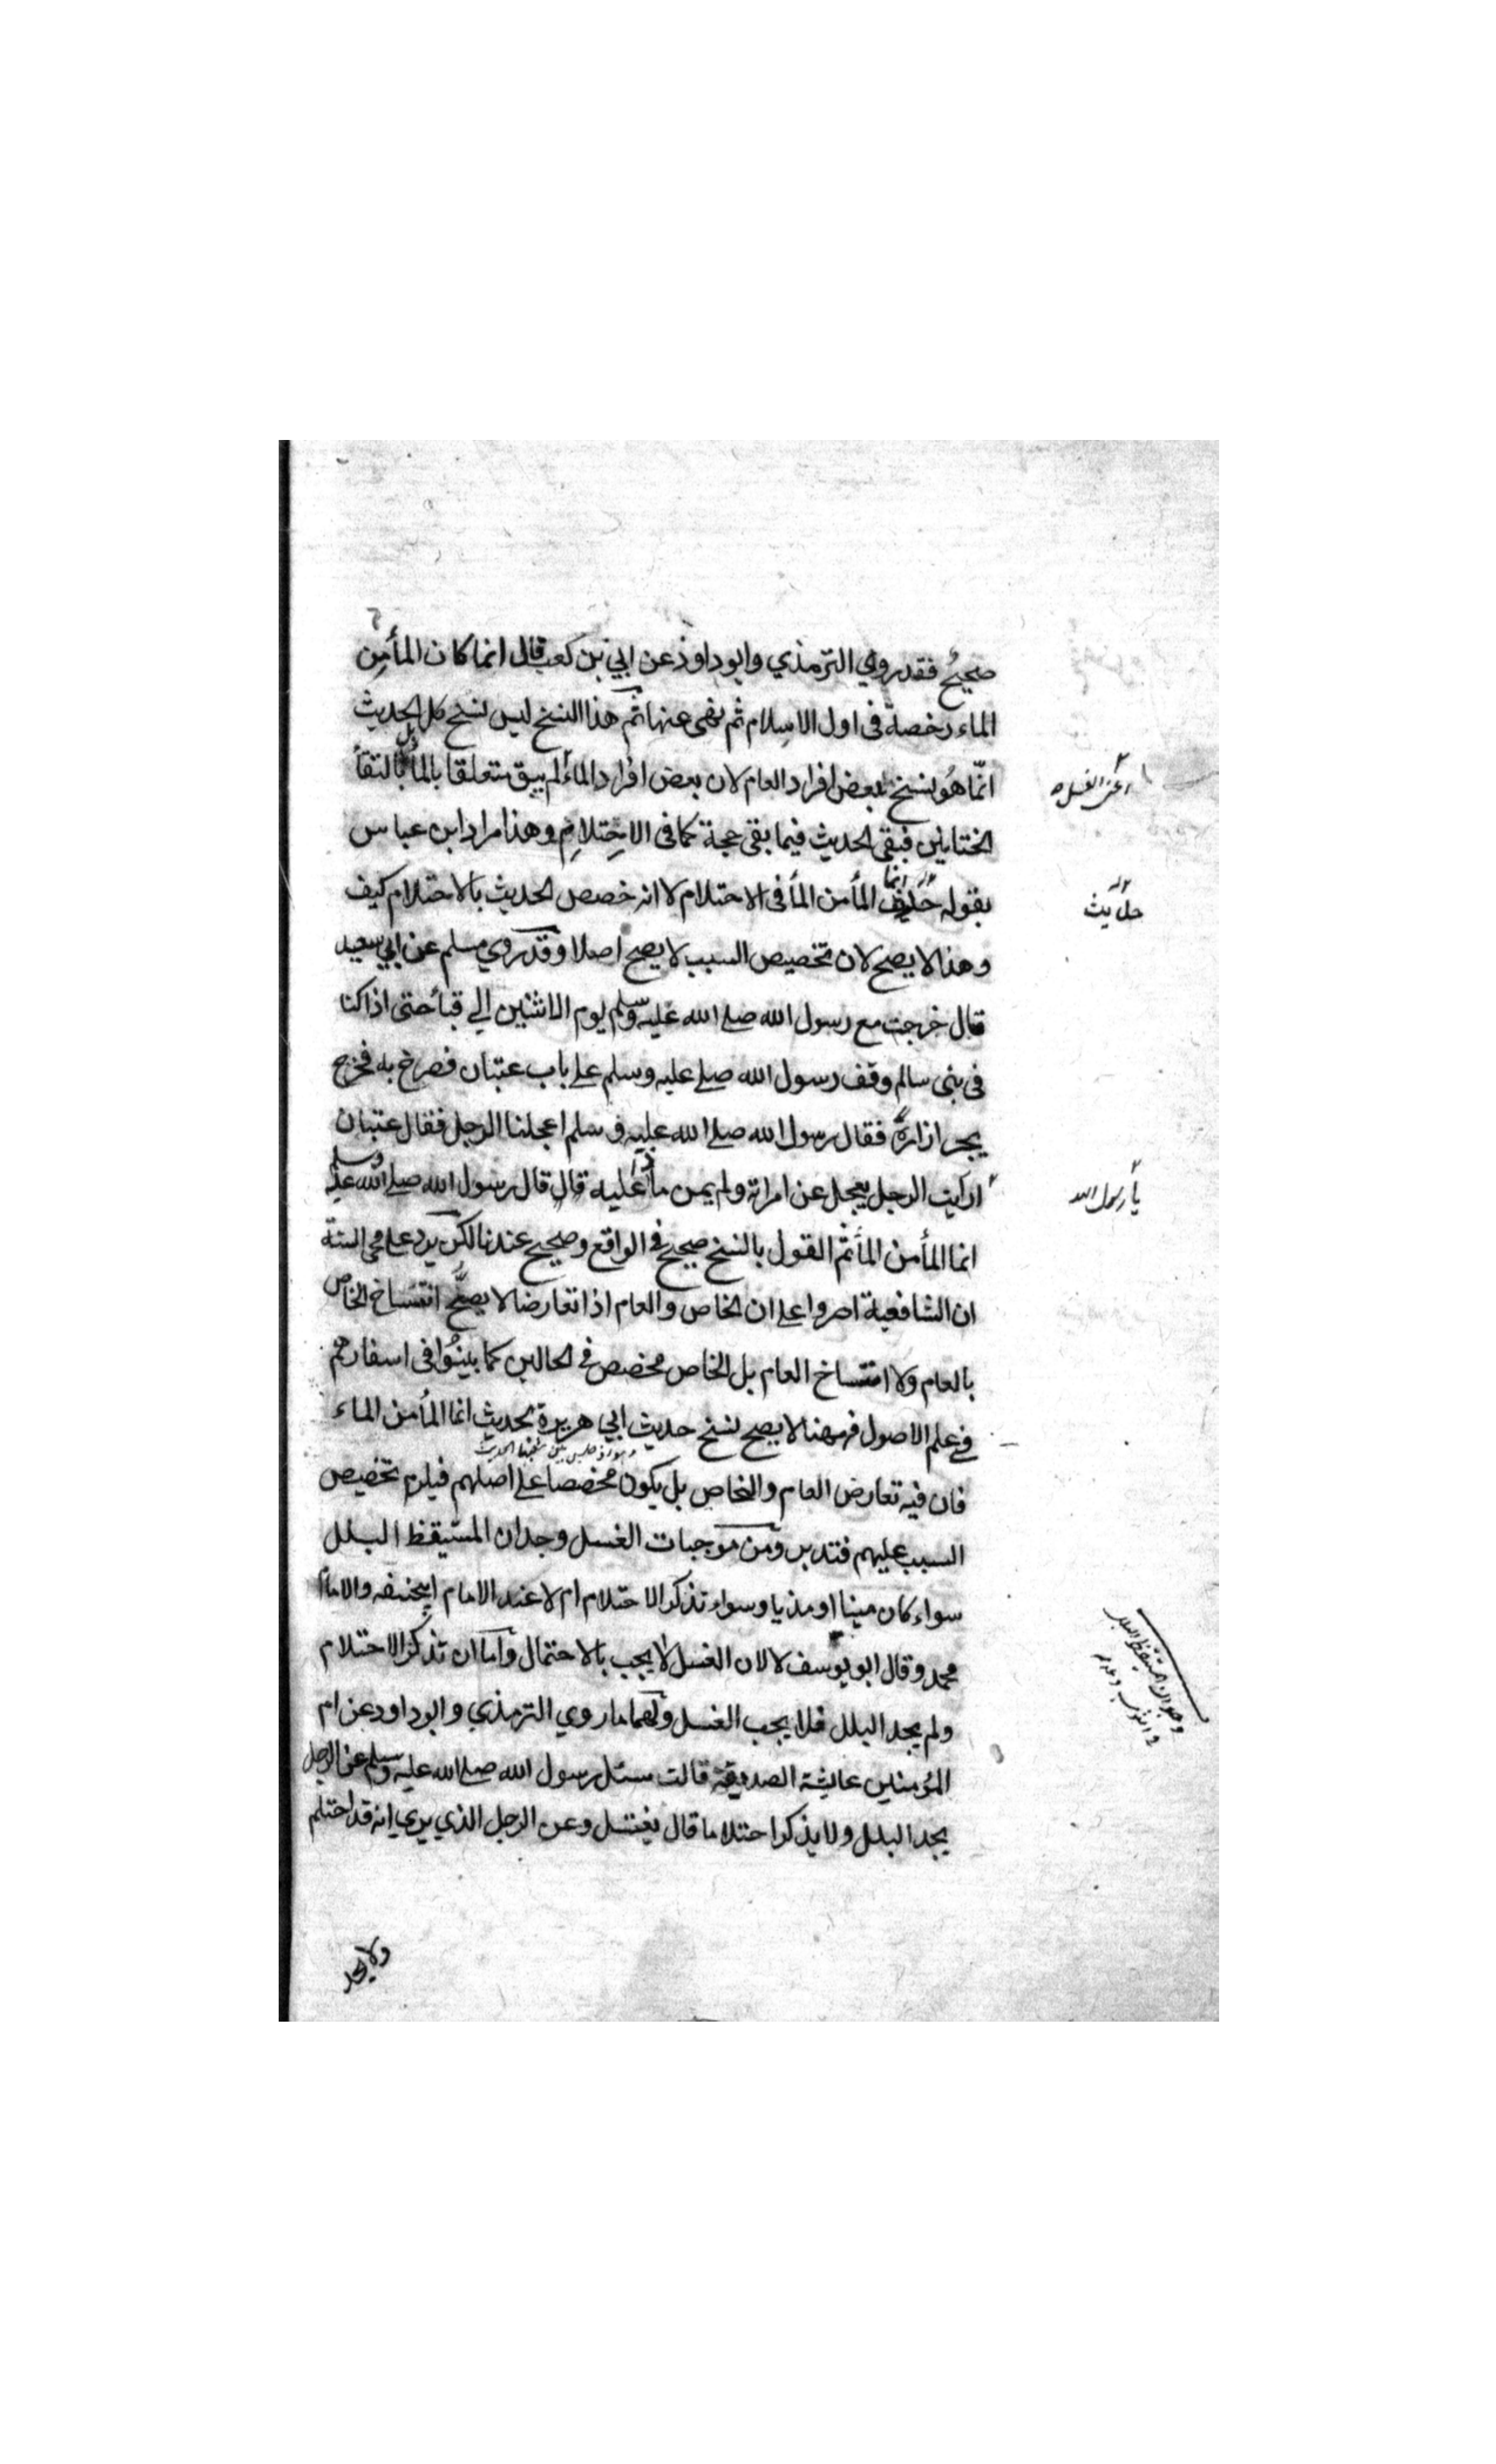 صحيح فقد روي الترمذي وابو داود عن ابي بن كعب قال انما كان المأ من
الماء رخصة في اول الاسلام ثم نهى عنها ثم هذا النسخ ليس نسخ كل الحديث
انّما هو نسخ لبعض افراد العام لان بعض افراد الماء لم يبق متعلقا بالمأ بل بالتقأ
الختانين فبقى الحديث فيما بقى حجة كما فى الاحتلام وهذا مراد ابن عباس
بقوله انما المأ من المأ فى الاحتلام لا انه خصص الحديث بالاحتلام كيف
وهذا لا يصح لان تخصيص السبب لا يصح اصلا وقد روي مسلم عن ابي سعيد
قال خرجت مع رسول الله صلى الله عليه وسلم يوم الاثنين الي قبأ حتى اذا كنا
فى بنى سالم وقف رسول الله صلى عليه وسلم على باب عتبان فصرخ به فخرج
يجر ازاره فقال رسول الله صلى الله عليه وسلم اعجلنا الرجل فقال عتبان
ارايت الرجل يعجل عن امراته ولم يمن ماذا عليه قال قال رسول الله صلى الله عليه وسلم
انما المأ من المأ ثم القول بالنسخ صحيح في الواقع وصحيح عندنا لكن يرد على محى السنة
ان الشافعية اصروا على ان الخاص والعام اذا تعارضا لا يصح انتساخ الخاص
بالعام ولا انتساخ العام بل الخاص مخصص في الحالين كما بينوا فى اسفارهم
في علم الاصول فههنا لا يصح نسخ حديث ابي هريرة لحديث انما المأ من الماء
فان فيه تعارض العام والخاص بل يكون مخصصا على اصلهم فيلزم تخصيص
السبب عليهم فتدبر ومن موجبات الغسل وجدان المستيقظ البلل
سواء كان منيا او مذيا وسواء تذكر الاحتلام ام لا عند الامام ابيحنيفه والامام
محمد وقال ابو يوسف لا لان الغسل لا يجب بالاحتمال واما ان تذكر الاحتلام
ولم يجد البلل فلا يجب الغسل ولهما ما روي الترمذي وابو داود عن ام
المؤمنين عايشة الصديقة قالت سئل رسول الله صلى الله عليه وسلم عن الرجل
يجد البلل ولا يذكر احتلاما قال يغتسل وعن الرجل الذي يري انه قد احتلم
ولا يجد
اعنى الغسل
حديث
يا رسول الله